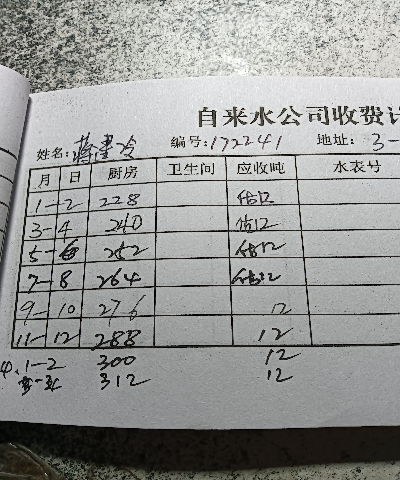 自来水公司收费计
姓名: 蒋 冷 编号:172241 地址: 3-
月 日 厨房 卫生间 应收吨 水表号
1-2 228 估12
3-4 240 估12
5-6 252 估12
7-8 264 估12
9-10 276 12
11-12 288 12
1-2 300 12
312 12